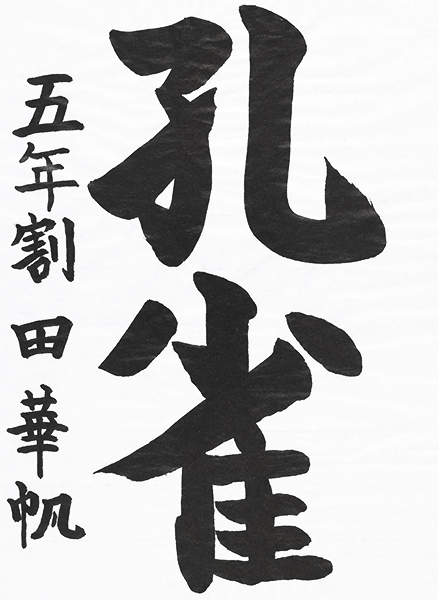 孔雀
五年割田華帆